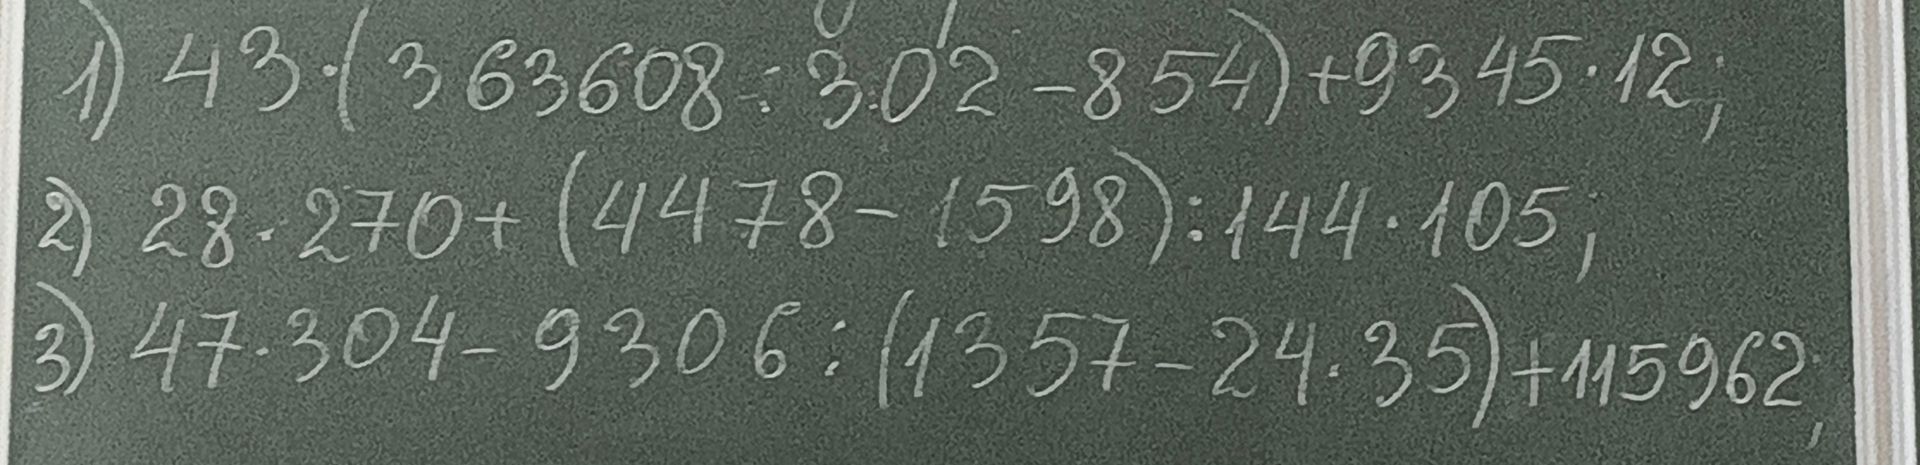 1) 43·(363608:302-854)+9345·12;
2) 28·270+(4478-1598):144·105;
3) 47·304-9306:(1357-24·35)+115962;